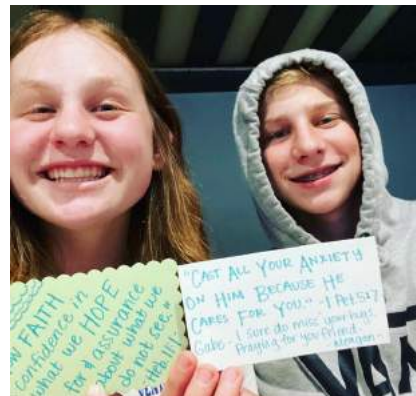 FAITH
confidence in
what we HOPE
for & assurance
about what we
do not see."
Heb 11:1
"CAST ALL YOUR ANXIETY
ON HIM BECAUSE HE
CARES FOR YOU." -1 Pet 5:7
Gabe- I sure do miss your hugs.
Praying for you friend.
-Meagan-
VAN